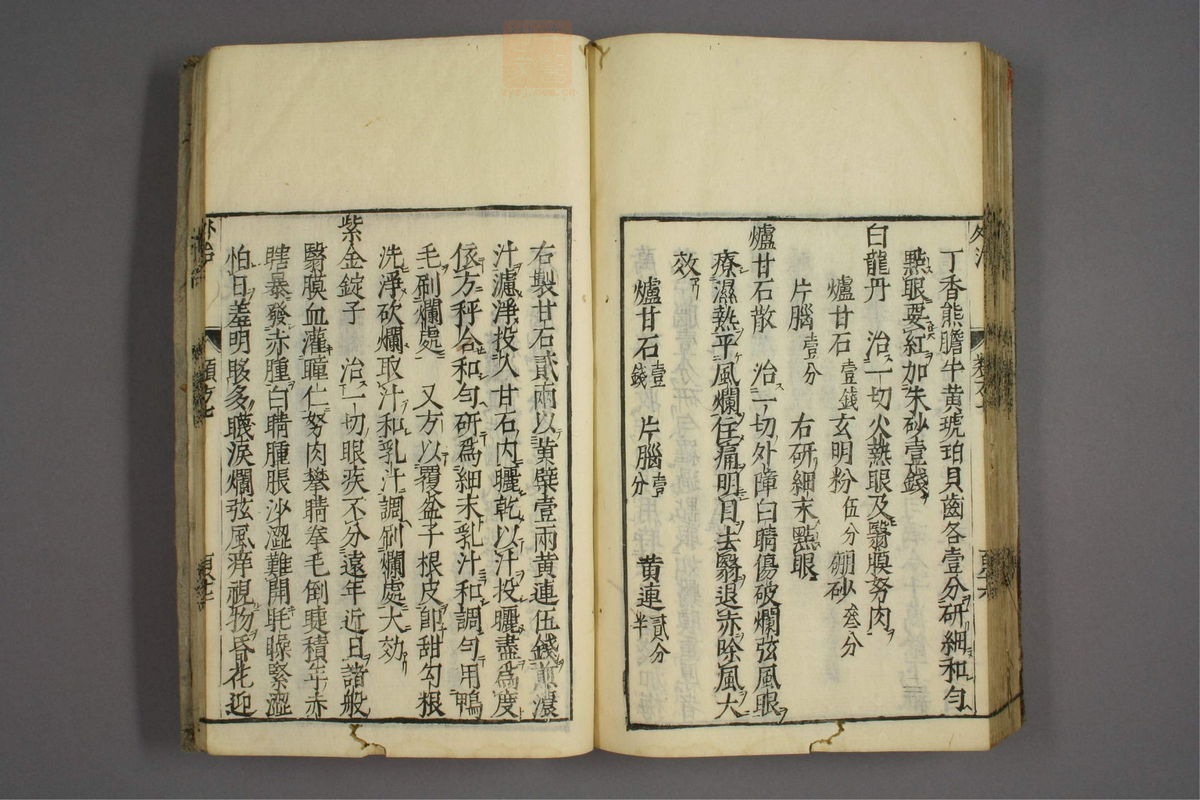 丁香熊膽牛黃琥珀貝齒各壹分研細和勻
㸃眼要紅加朱砂壹錢
白龍丹 治一切火熱眼及翳膜努肉
爐甘石壹錢 玄明粉伍分 硼砂叄分
片腦壹分 右研細末㸃眼
爐甘石散 治一切外障白睛傷破爛弦風眼
療濕熱平風爛住痛明目去翳退赤除風大
效
爐甘石壹錢 片腦壹分 黃連貳分半
右製甘石貳兩以黃檗壹兩黃連伍錢煎濃
汁濾淨投入甘石内曬乾以汁投曬盡爲度
依方秤合和勻研爲細末乳汁和調勻用鴨
毛刷爛處 又方以覆盆子根皮卽甜勾根
洗淨砍爛取汁和乳汁調刷爛處大効
紫金錠子 治一切眼疾不分遠年近日諸般
翳膜血灌瞳仁努肉攀睛拳毛倒睫積年赤
瞎暴發赤腫白睛腫脹沙澀難開眊矂緊澀
怕日羞明眵多眵淚爛弦風痒視物昏花迎
外治